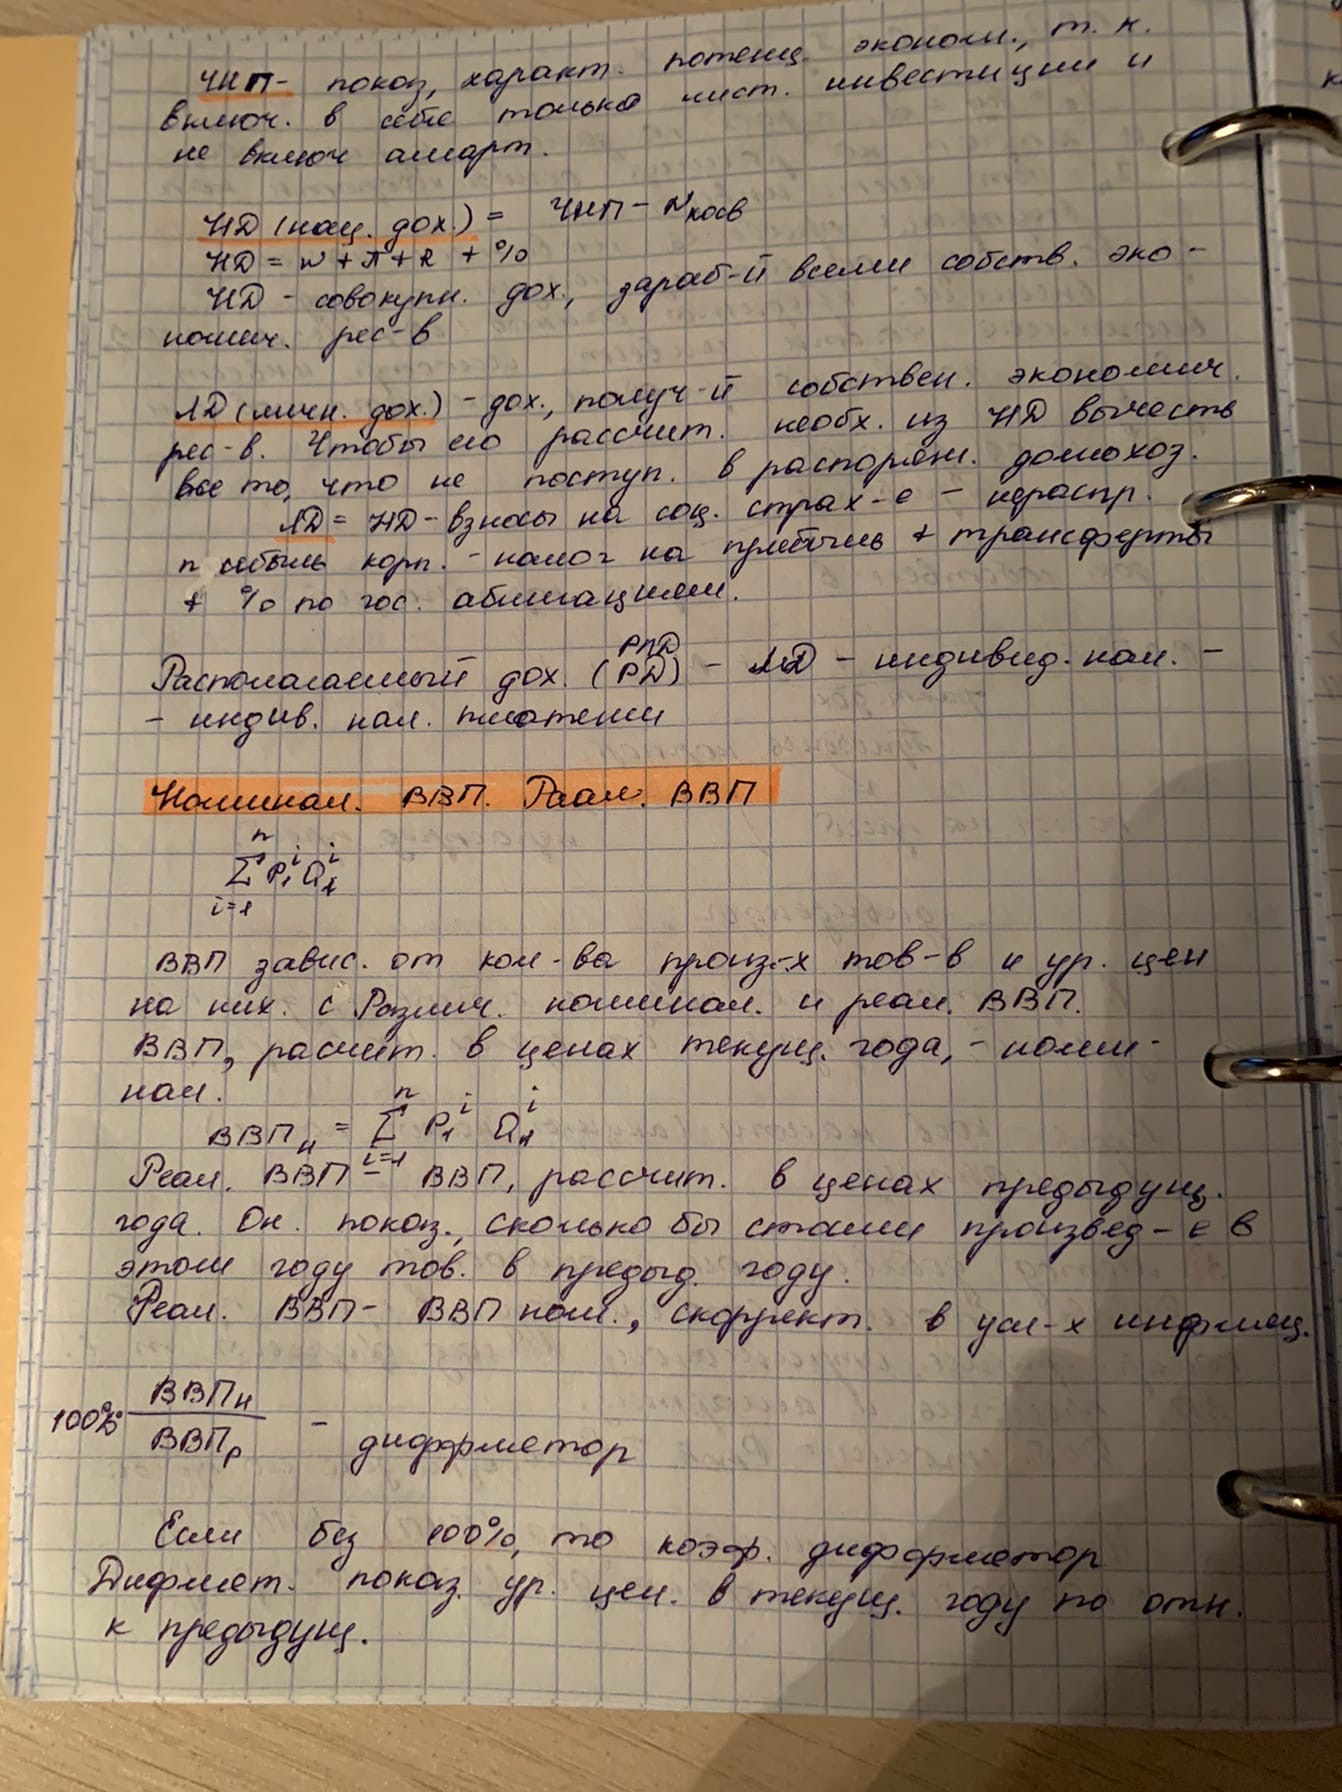 ЧНП - показ, характ. потенц. эконом., т. к.
включ. в себе только чист. инвестиции и
не включ аморт.
НД (нац. дох.) = ЧНП - Nкосв
НД = w + π + R + %
НД - совокупн. дох., зараб-й всеми собств. эко-
номич. рес-в
ЛД (личн. дох.) - дох., получ-й собствен. экономич.
рес-в. Чтобы его рассчит. необх. из НД вычесть
все то, что не поступ. в распоряж. домохоз.
ЛД = НД - взносы на соц. страх-е - нераспр.
прибыль корп. - налог на прибыль + трансферты
+ % по гос. облигациям.
РЛД
Располагаемый дох. (РД) - ЛД - индивид. нал. -
- индив. нал. платежи
Номинал. ВВП. Реал. ВВП
n
Σ P₁ⁱ Q₁ⁱ
i=1
ВВП завис. от кол-ва произ-х тов-в и ур. цен
на них. с Различ. номинал. и реал. ВВП.
ВВП, расчит. в ценах текущ. года, - номи-
нал.
n
ВВПн = Σ P₁ⁱ Q₁ⁱ
i=1
Реал. ВВП - ВВП, рассчит. в ценах предыдущ.
года. Он. показ., сколько бы стоили произвед-е в
этом году тов. в предыд. году.
Реал. ВВП - ВВП ном., скоррект. в усл-х инфляц.
100% ВВПн / ВВПр - диффлятор
Если без 100%, то коэф. диффлятор
Дифлят. показ. ур. цен. в текущ. году по отн.
к предыдущ.